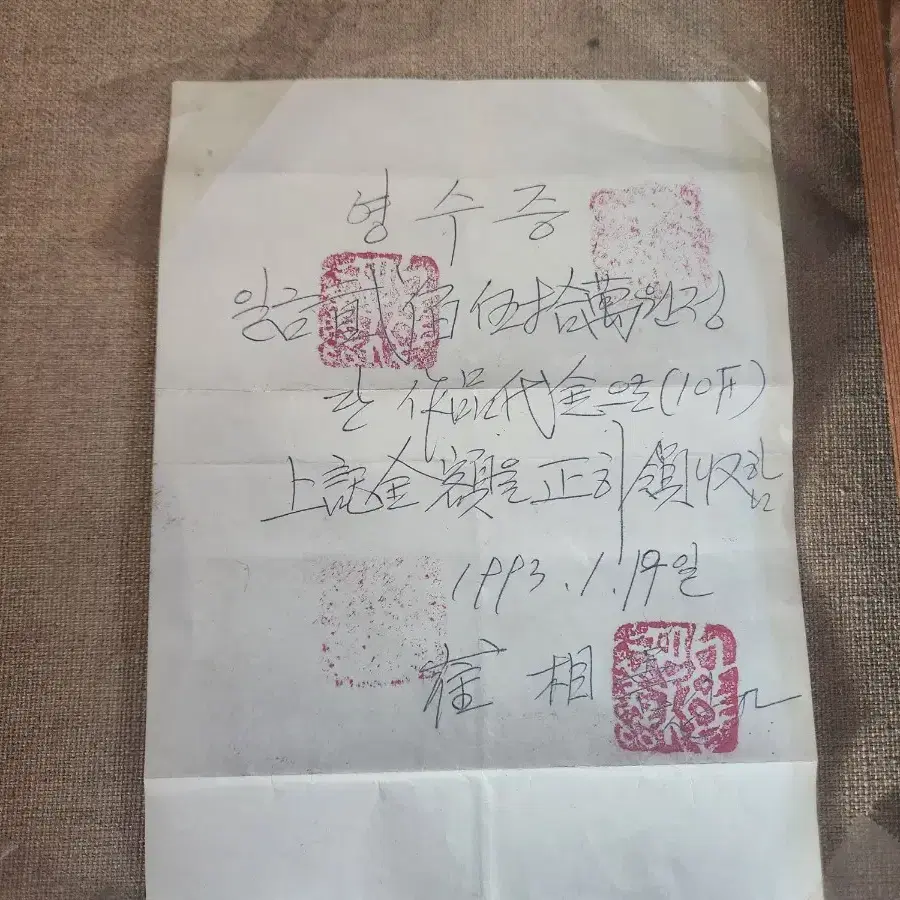 영수증
일금 貳佰伍拾萬원정
단 作品代金으로(10F)
上記金額을 正히 領收함
1993.1.19일
崔相